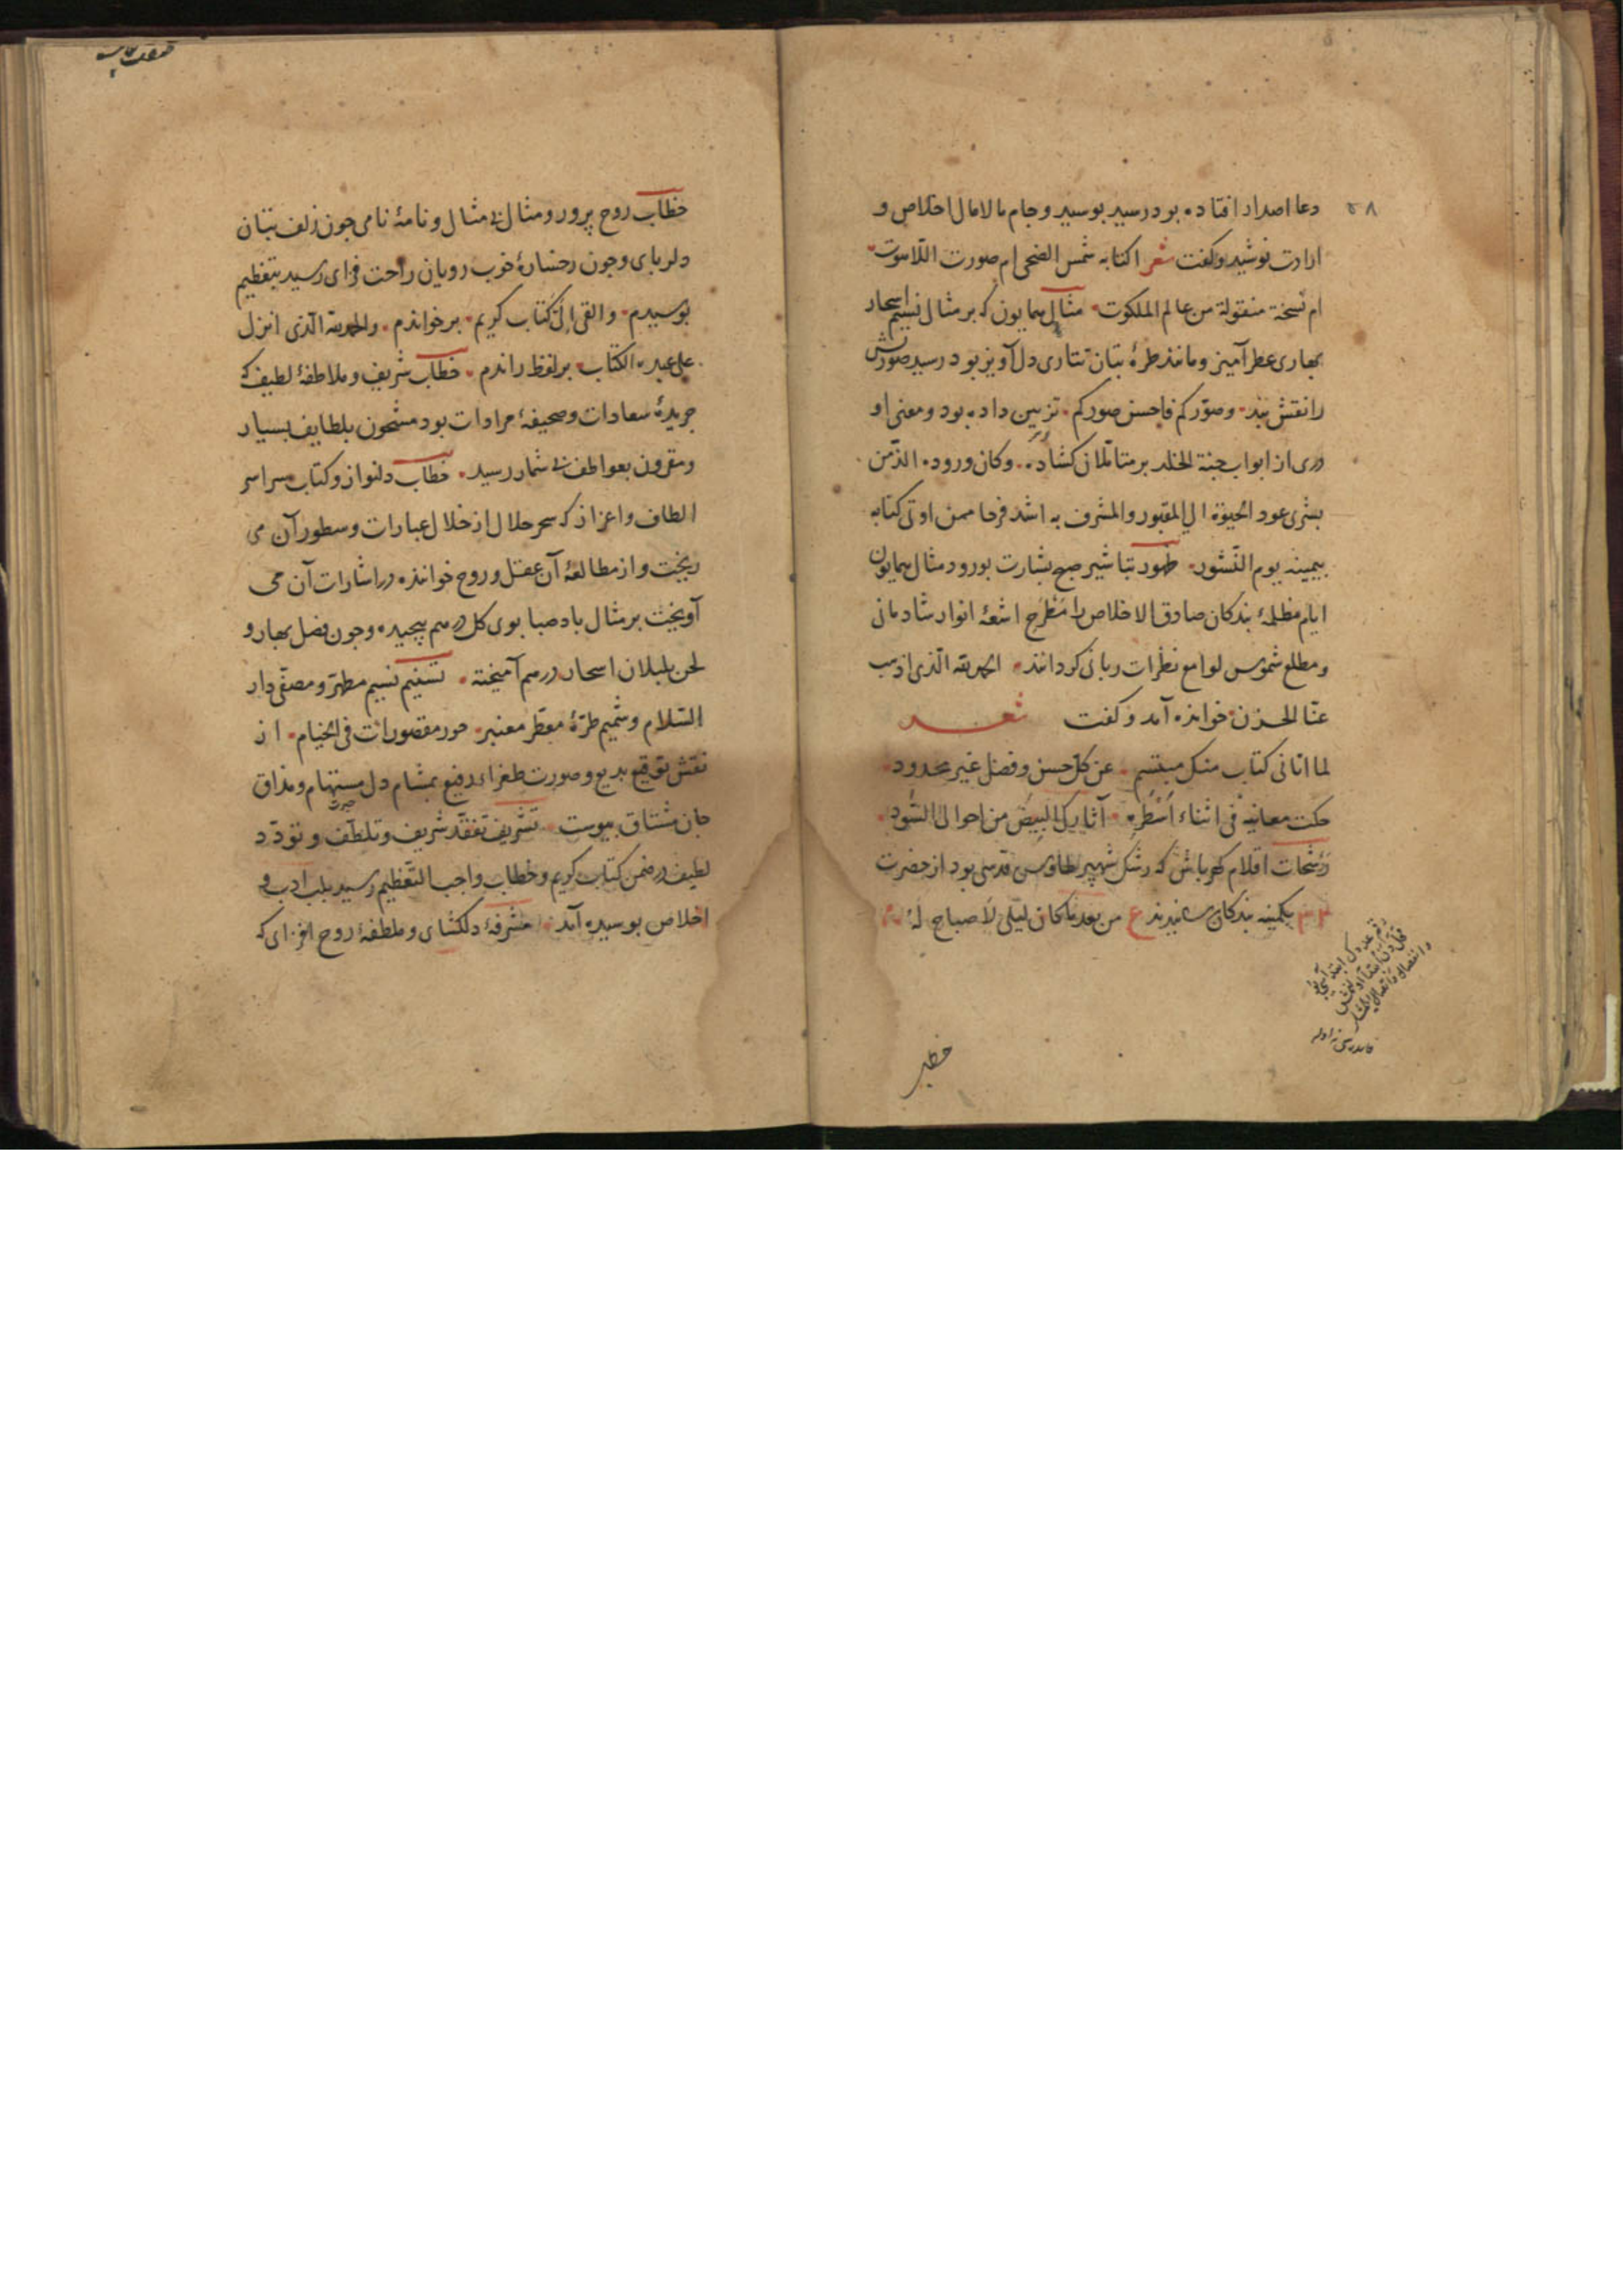 ۵۸
دعا اصدار افتاده بود رسید بوسید و جام مالامال اخلاص و
ارادت نوشید و کفت شعر اکتابه شمس الضحی ام صورت اللاهوت
ام نسخة منقولة من عالم الملکوت مثال همایون که بر مثال نسیم اسحار
بهاری عطرآمیز و مانند طرهٔ بتان تتاری دل آویز بود رسید صورتش
را نقش بند وصوّرکم فاحسن صورکم تزیین داده بود و معنی او
دری از ابواب جنة الخلد بر متأملان کشاده وکان وروده الذّ من
بشری عود الحیوة الی المقبور والمشرف به اشد فرحا ممن اوتی کتابه
بیمینه یوم النّشور ظهور تباشیر صبح بشارت بورود مثال همایون
ایام مظلمهٔ بندکان صادق الاخلاص را مطرح اشعهٔ انوار شادمانی
و مطلع شموس لوامع نظرات ربانی کردانند الحمدلله الّذی اذهب
عنّا الحزن خوانده آمد و کفت شعر
لما اتانی کتاب منک مبتسم عن کلّ حسن وفضل غیر محدود
حکت معانیه فی اثناء اسطره آثارک البیض من احوالی السّود
رشحات اقلام کهرباش که رشک شهپر طاوس قدسی بود از حضرت
بکمینه بندکان رسانیدند ع من بعد ما کان لیلی لا صباح له
خطبر
خطاب روح پرور و مثال بی مثال و نامهٔ نامی جون زلف بتان
دلربای و جون رخسارهٔ خوب رویان راحت فزای رسید بتعظیم
بوسیدم والقی الیّ کتاب کریم برخواندم والحمدلله الّذی انزل
علی عبده الکتاب بر لفظ راندم خطاب شریف و ملاطفهٔ لطیف که
جریدهٔ سعادات و صحیفهٔ مرادات بود مشحون بلطایف بسیار
و مقرون بعواطف بی شمار رسید خطاب دلنواز و کتاب سراسر
الطاف و اعزاز که سحر حلال از خلال عبارات و سطور آن می
ریخت و از مطالعهٔ آن عقل و روح خوانده در اشارات آن می
آویخت بر مثال باد صبا بوی کل در هم پیچیده و جون فصل بهار و
لحن بلبلان اسحار در هم آمیخته تسنیم نسیم مطهّر و مصفّی دار
السّلام و شمیم طرّهٔ معطّر معنبر حور مقصورات فی الخیام از
نقش توقیع بدیع و صورت طغراء رفیع بمشام دل مستهام و مذاق
جان مشتاق پیوست تشریف تفقّد شریف و تلطّف و تودّد
لطیف در ضمن کتاب کریم و خطاب واجب التّعظیم رسید بلب ادب و
اخلاص بوسیده آمد مشرفهٔ دلکشای و ملطفهٔ روح افزای که